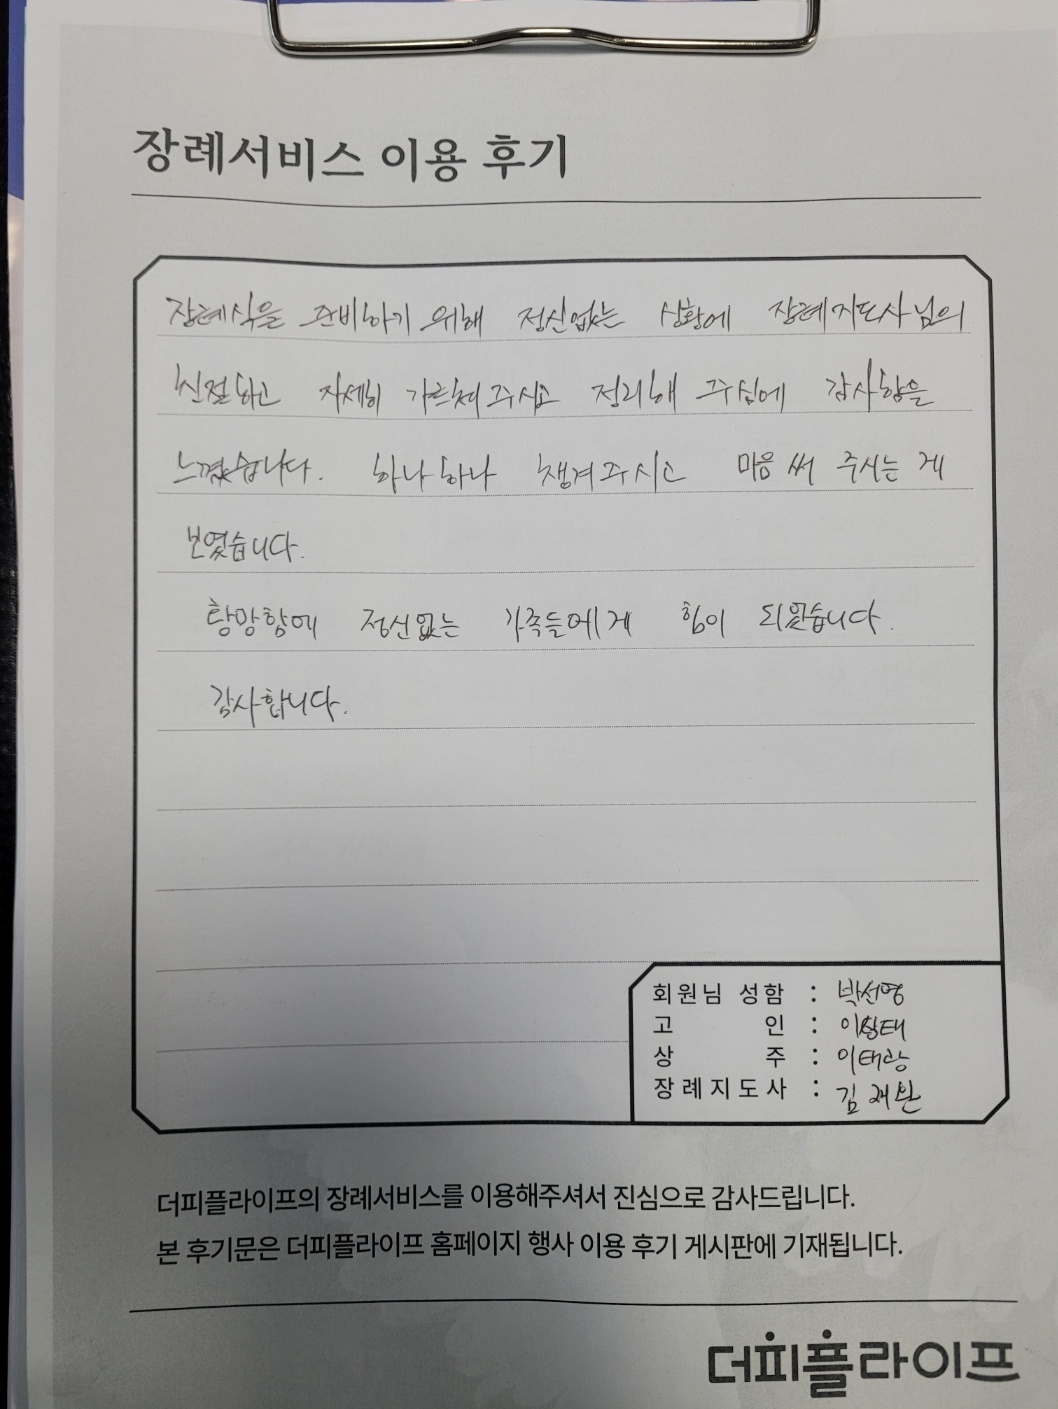 장례서비스 이용 후기
장례식을 준비하기 위해 정신없는 상황에 장례지도사님의
친절하고 자세히 가르쳐주시고 정리해 주심에 감사함을
느꼈습니다. 하나하나 챙겨주시고 마음 써 주시는 게
보였습니다.
황망함에 정신없는 가족들에게 힘이 되었습니다.
감사합니다.
회원님 성함 : 박선영
고 인 : 이창태
상 주 : 이태광
장례지도사 : 김재완
더피플라이프의 장례서비스를 이용해주셔서 진심으로 감사드립니다.
본 후기문은 더피플라이프 홈페이지 행사 이용 후기 게시판에 기재됩니다.
더피플라이프